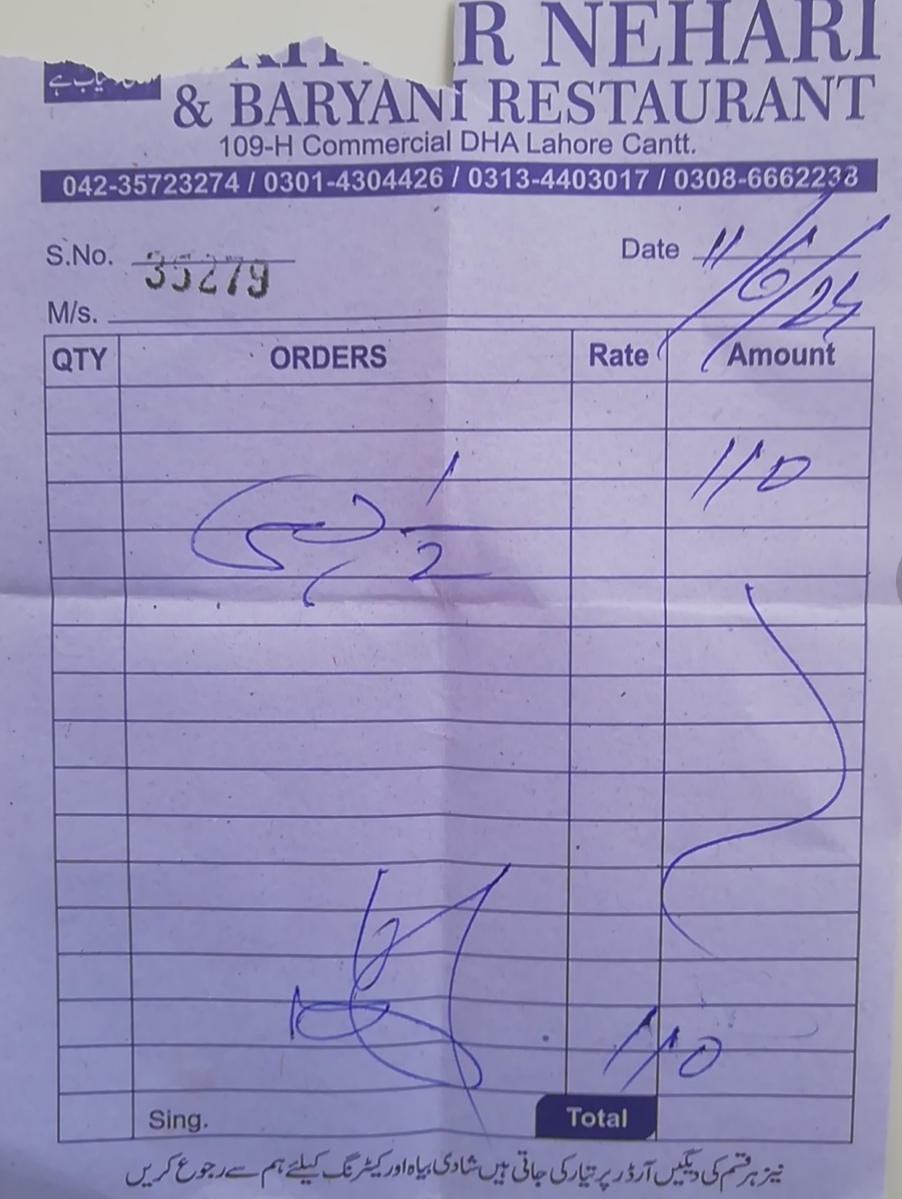 R NEHARI
& BARYANI RESTAURANT
109-H Commercial DHA Lahore Cantt.
042-35723274 / 0301-4304426 / 0313-4403017 / 0308-6662238
S.No. 35279
Date 11/6/24
M/s.
QTY ORDERS Rate Amount
1/2 110
110
Sing. Total
نیز ہر قسم کی دیگیں آرڈر پر تیار کی جاتی ہیں شادی بیاہ اور کیٹرنگ کیلئے ہم سے رجوع کریں